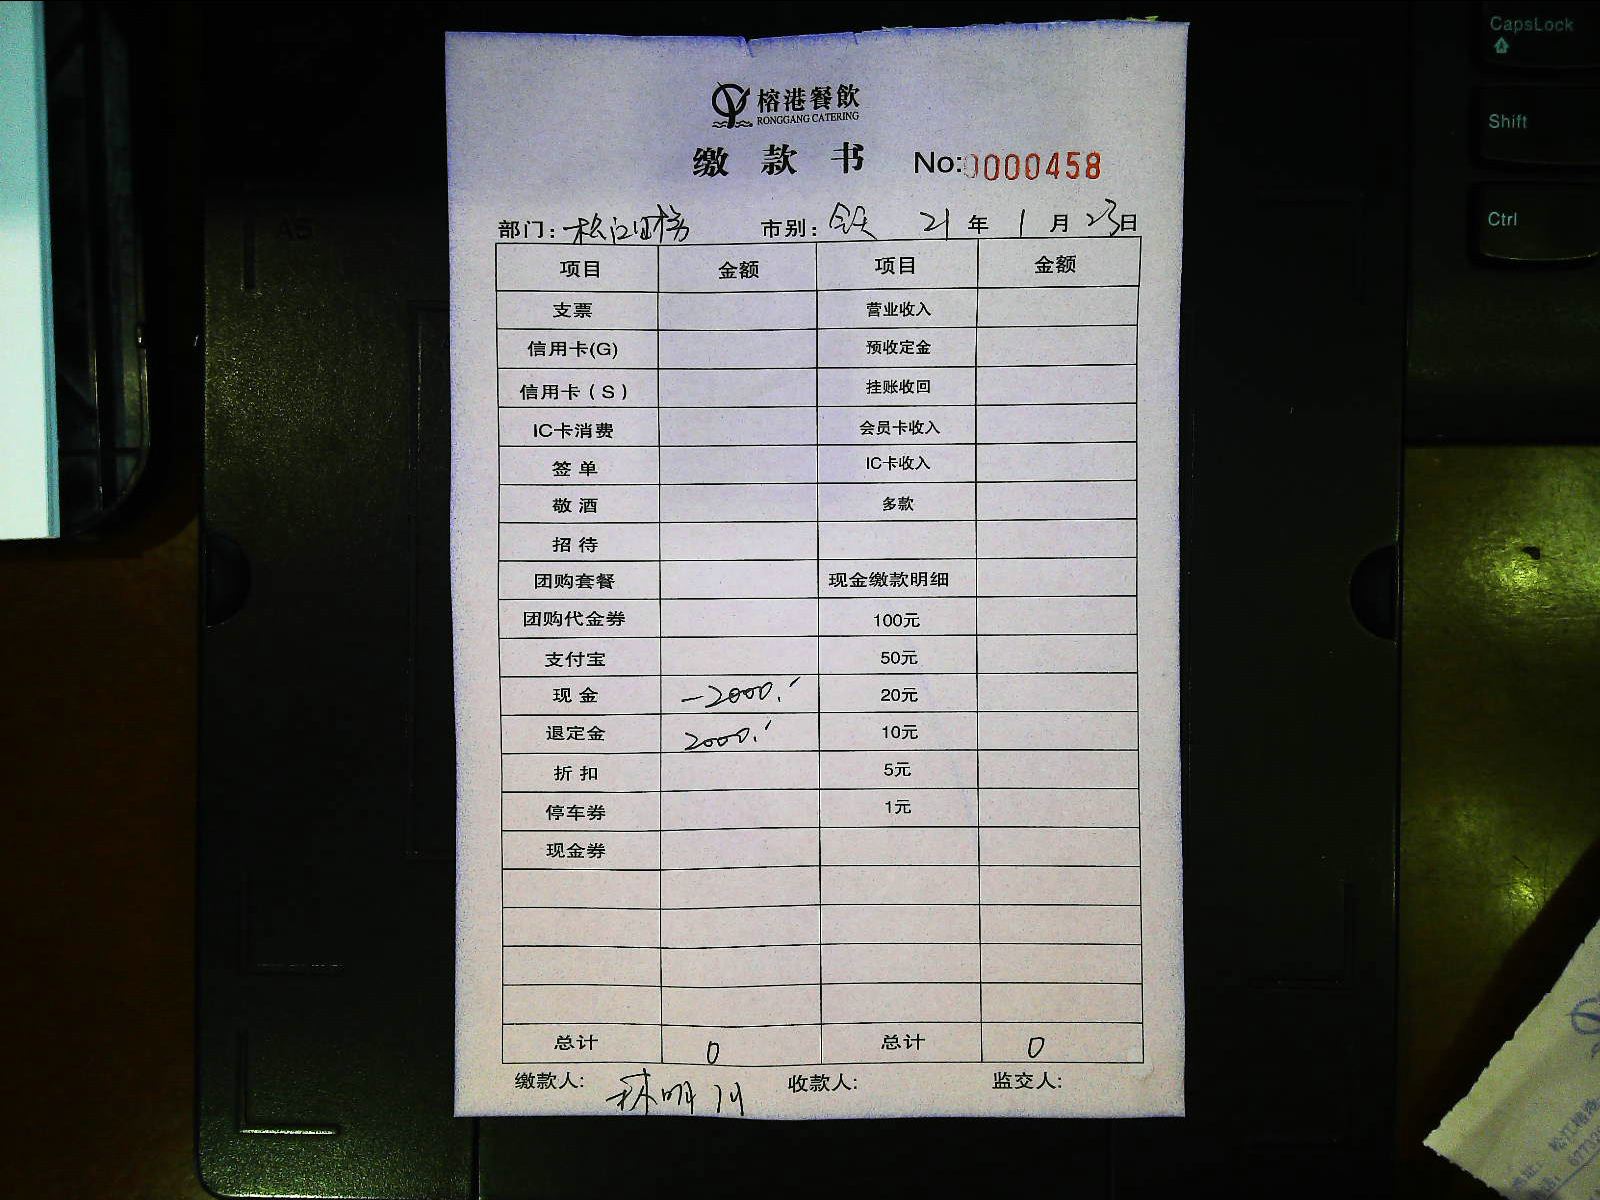 榕港餐飲
RONGGANG CATERING
缴款书 No:0000458
部门: 市别: 全天 21年1月23日
项目 金额 项目 金额
支票 营业收入
信用卡(G) 预收定金
信用卡(S) 挂账收回
IC卡消费 会员卡收入
签单 IC卡收入
敬酒 多款
招待
团购套餐 现金缴款明细
团购代金券 100元
支付宝 50元
现金 -2000.- 20元
退定金 2000.- 10元
折扣 5元
停车券 1元
现金券
总计 0 总计 0
缴款人: 林明川 收款人: 监交人:
CapsLock
Shift
Ctrl
A5